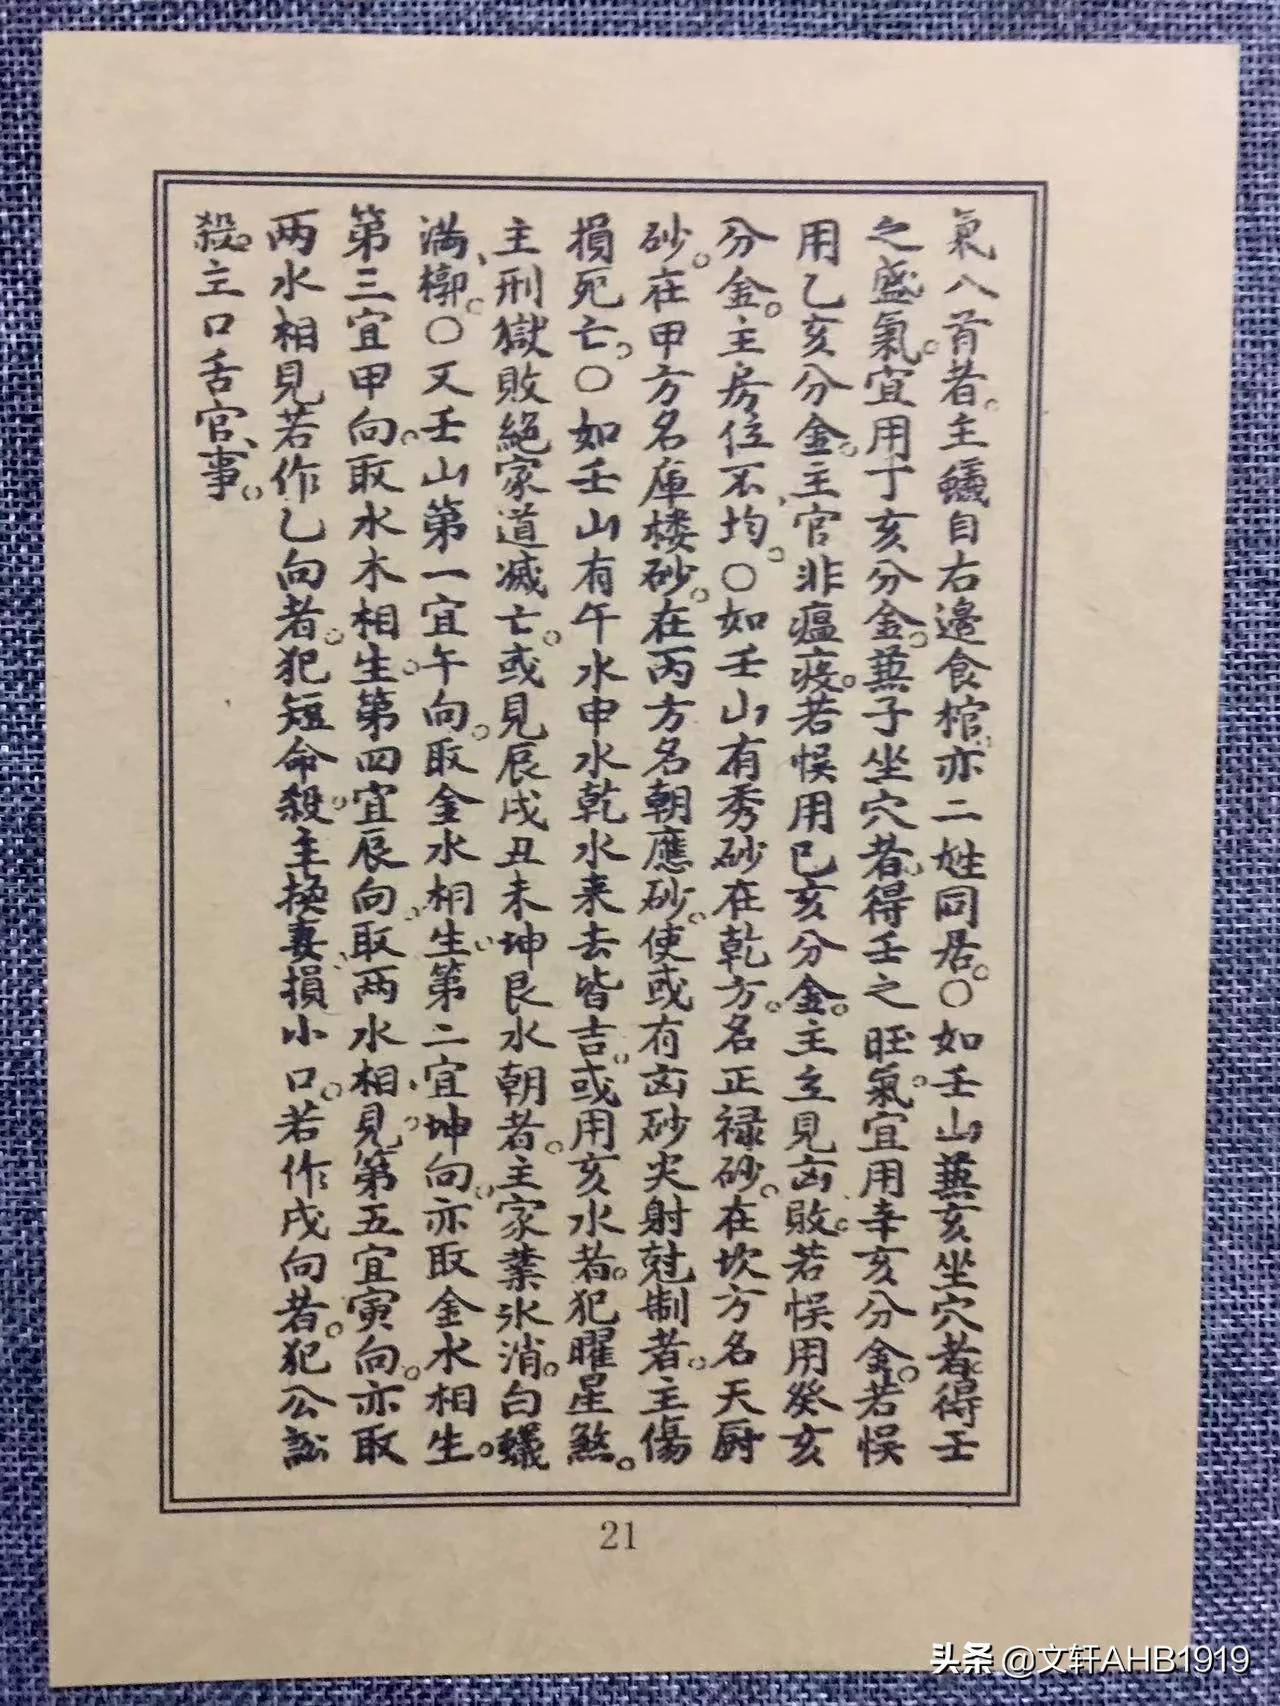 氣八首者。主蟻自右邊食棺。亦二姓同居。〇如壬山兼亥坐穴者得壬
之盛氣。宜用丁亥分金。兼子坐穴者。得壬之旺氣。宜用辛亥分金。若悮
用乙亥分金。主官非瘟疫。若悮用已亥分金。主立見凶敗。若悮用癸亥
分金。主房位不均。〇如壬山有秀砂在乾方。名正禄砂。在坎方名天厨
砂。在甲方名庫楼砂。在丙方名朝應砂。使或有凶砂尖射尅制者。主傷
損死亡。〇如壬山有午水申水乾水来去皆吉。或用亥水者。犯曜星煞。
主刑獄敗絕家道滅亡。或見辰戌丑未坤艮水朝者。主家業氷消。白蟻
滿槨。〇又壬山第一宜午向。取金水相生。第二宜坤向。亦取金水相生。
第三宜甲向。取水木相生。第四宜辰向。取两水相見。第五宜寅向。亦取
两水相見若作乙向者。犯短命殺。主換妻、損小口。若作戌向者。犯公訟
殺。主口舌官、事。
21
头条 @文轩AHB1919